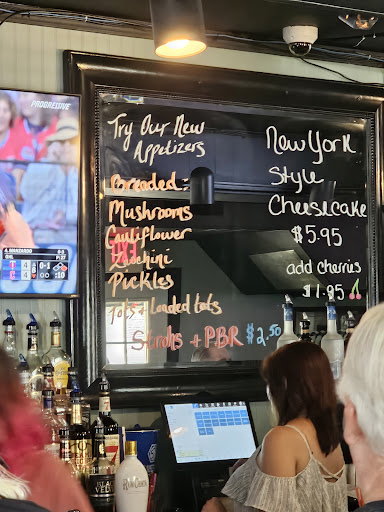 PROGRESSIVE
Try Our New
Appetizers
Breaded:
Mushrooms
Cauliflower
Zucchini
Pickles
Tots + Loaded tots
Strohs + PBR $2.50
New York
Style
Cheesecake
$5.95
add cherries
$1.95
A. MANZARDO